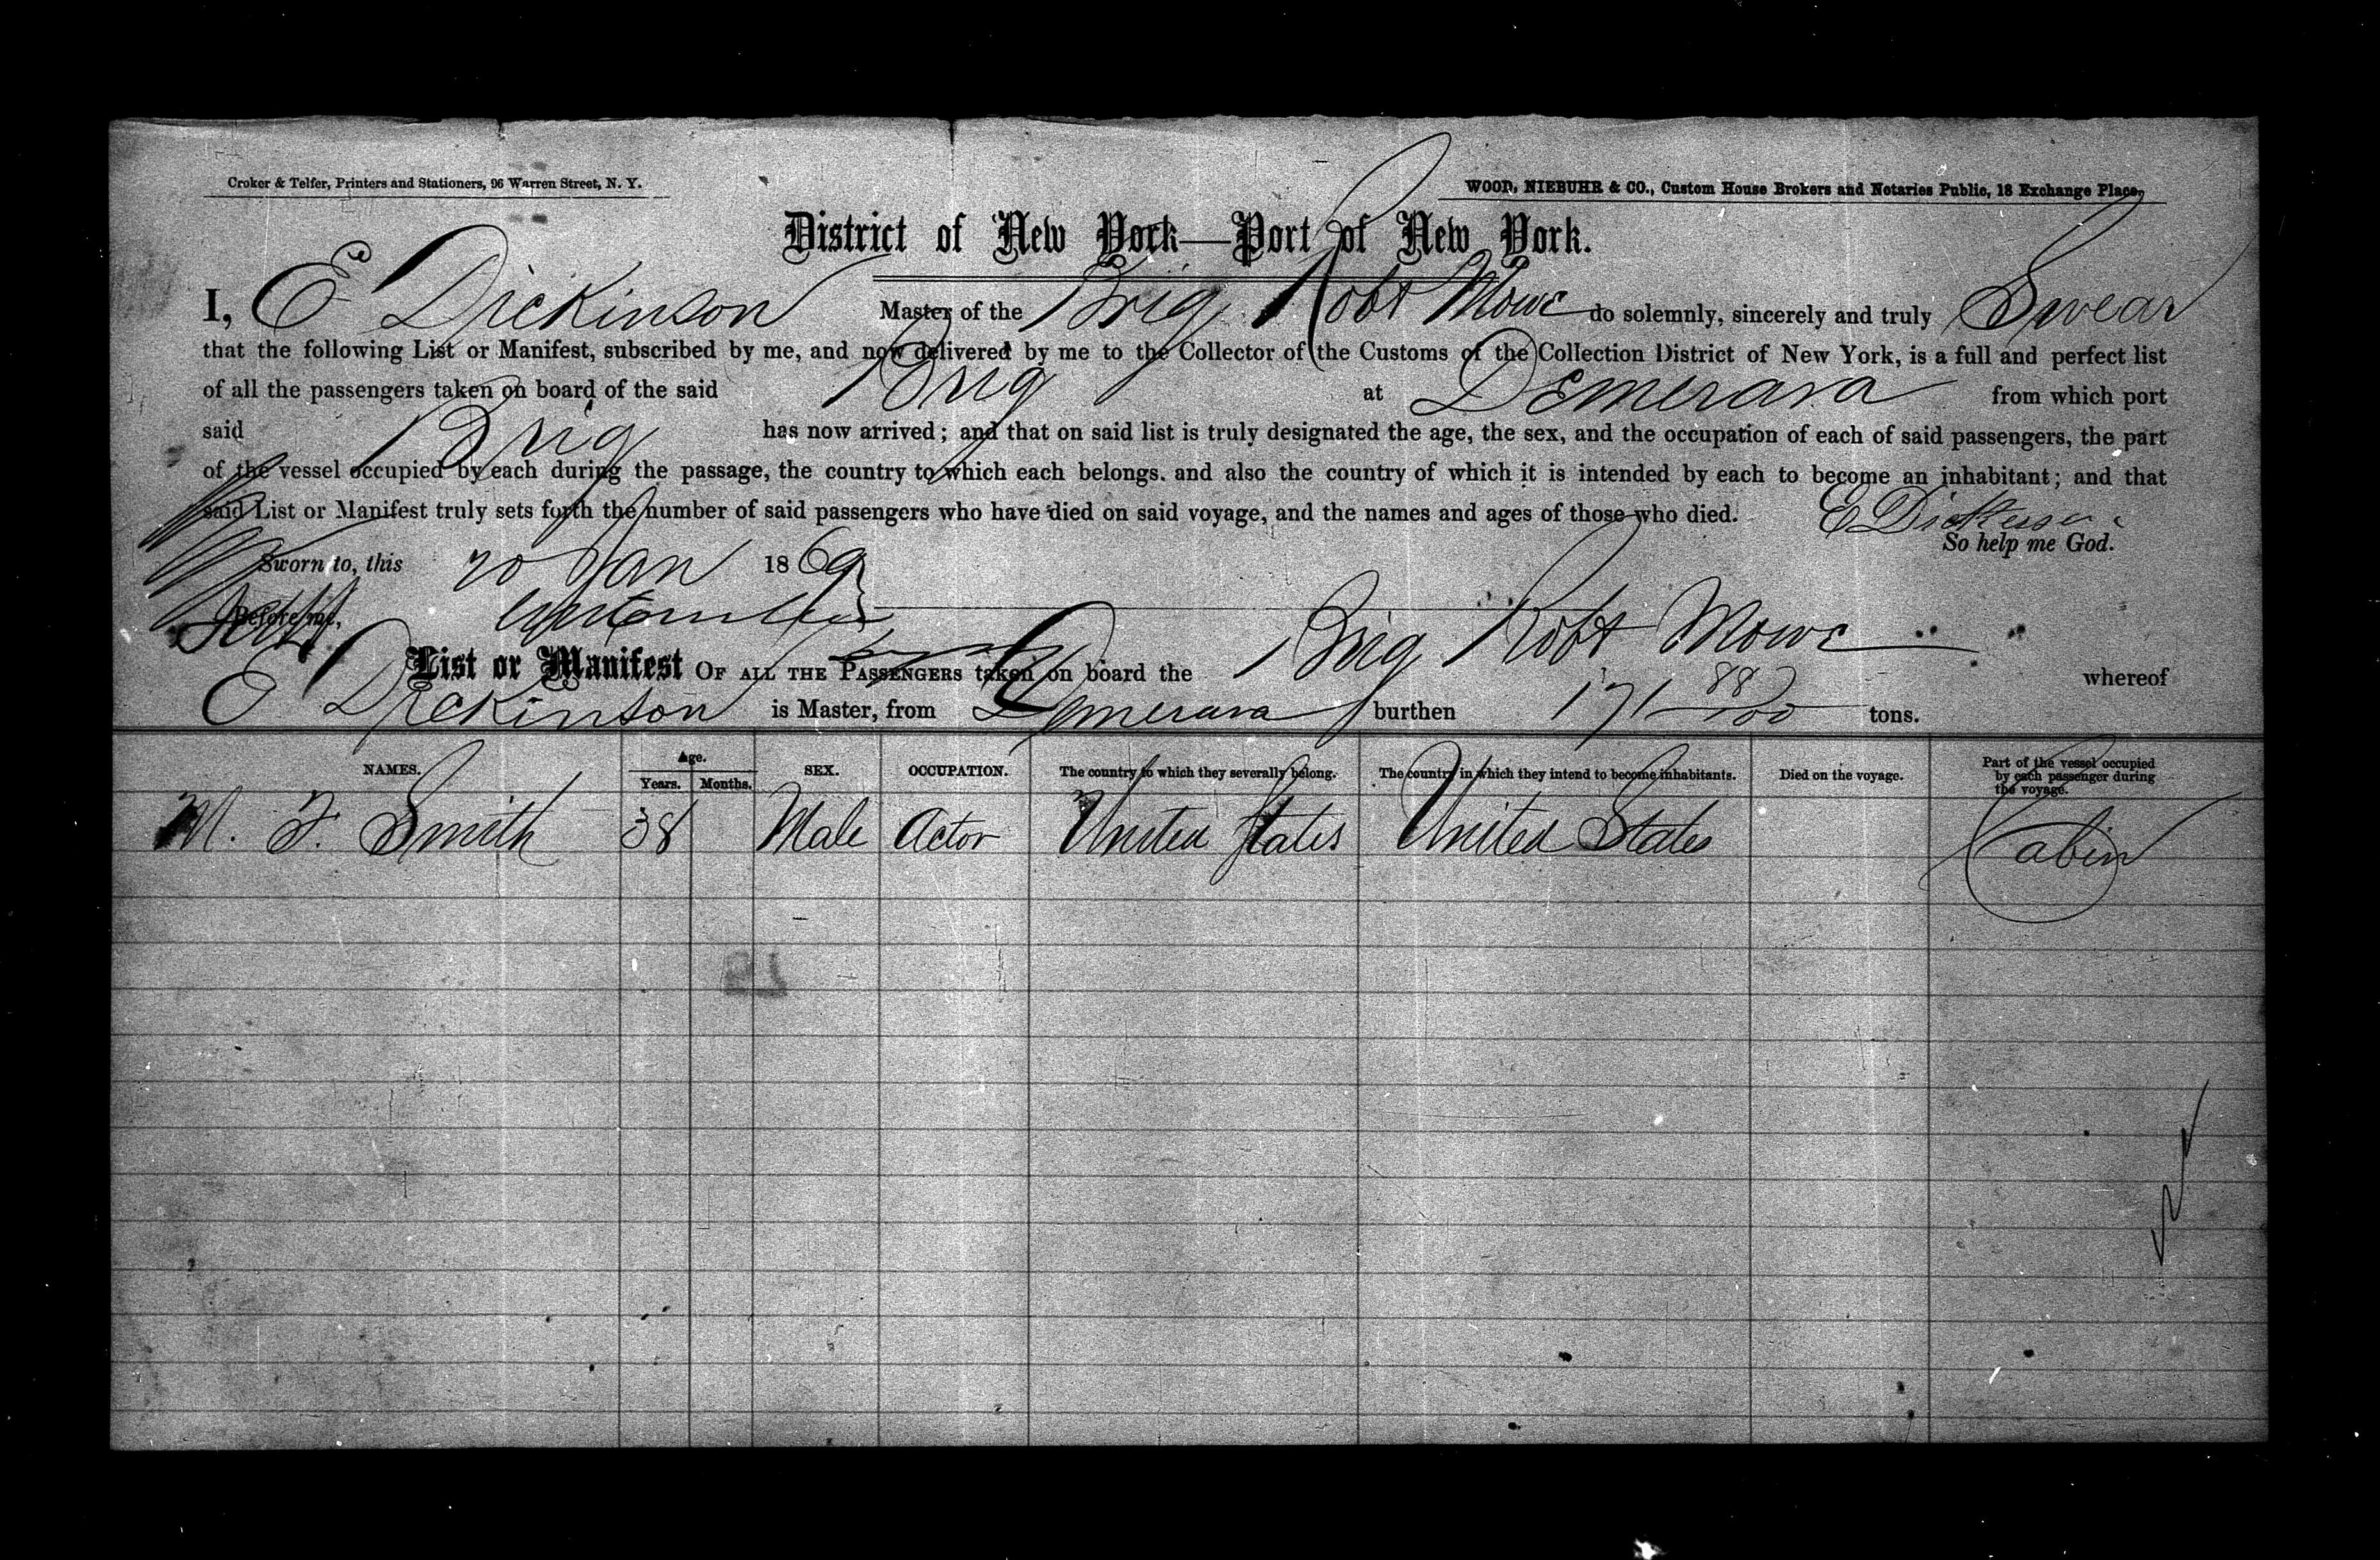 Croker & Telfer, Printers and Stationers, 96 Warren Street, N. Y.
WOOD, NIEBUHR & CO., Custom House Brokers and Notaries Public, 18 Exchange Place,
District of New York—Port of New York.
I, E Dickinson Master of the Brig Robt Mowe do solemnly, sincerely and truly Swear
that the following List or Manifest, subscribed by me, and now delivered by me to the Collector of the Customs of the Collection District of New York, is a full and perfect list
of all the passengers taken on board of the said Brig at Demerara from which port
said Brig has now arrived; and that on said list is truly designated the age, the sex, and the occupation of each of said passengers, the part
of the vessel occupied by each during the passage, the country to which each belongs. and also the country of which it is intended by each to become an inhabitant; and that
said List or Manifest truly sets forth the number of said passengers who have died on said voyage, and the names and ages of those who died.
E Dickinson
So help me God.
Sworn to, this 20 Jan 1869
Before me,
List or Manifest OF ALL THE PASSENGERS taken on board the Brig Robt Mowe whereof
E Dickinson is Master, from Demerara burthen 171 88/100 tons.
NAMES. Age. Years. Months. SEX. OCCUPATION. The country to which they severally belong. The country in which they intend to become inhabitants. Died on the voyage. Part of the vessel occupied by each passenger during the voyage.
M. F. Smith 38 Male Actor United States United States Cabin